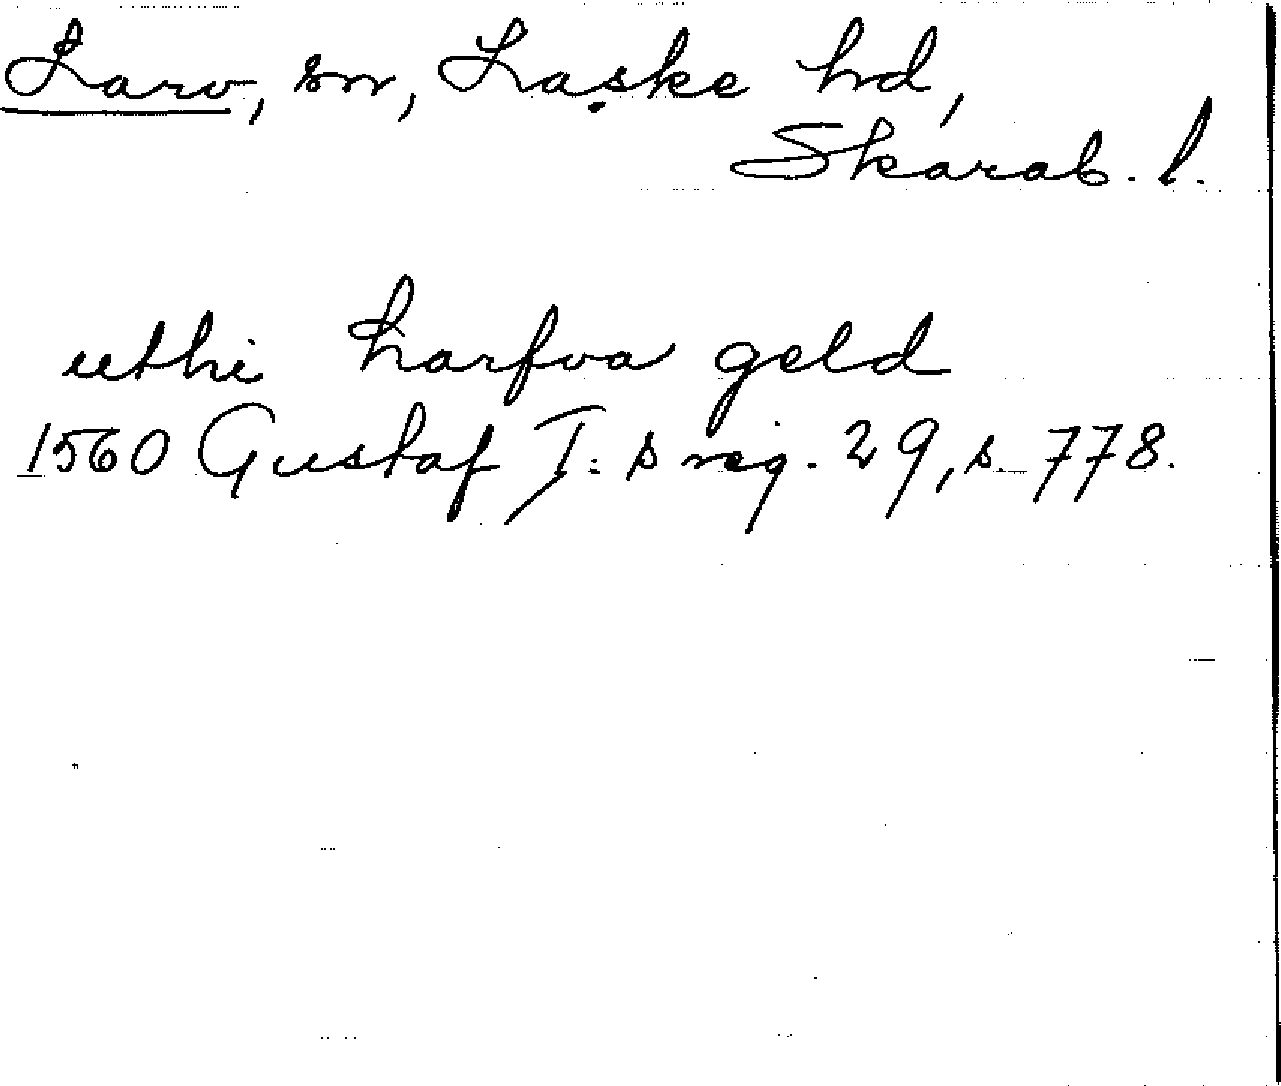 Larv, sn, Laske hd,
Skarab. l.
uthi Larfva geld
1560 Gustaf I: s reg. 29, s. 778.